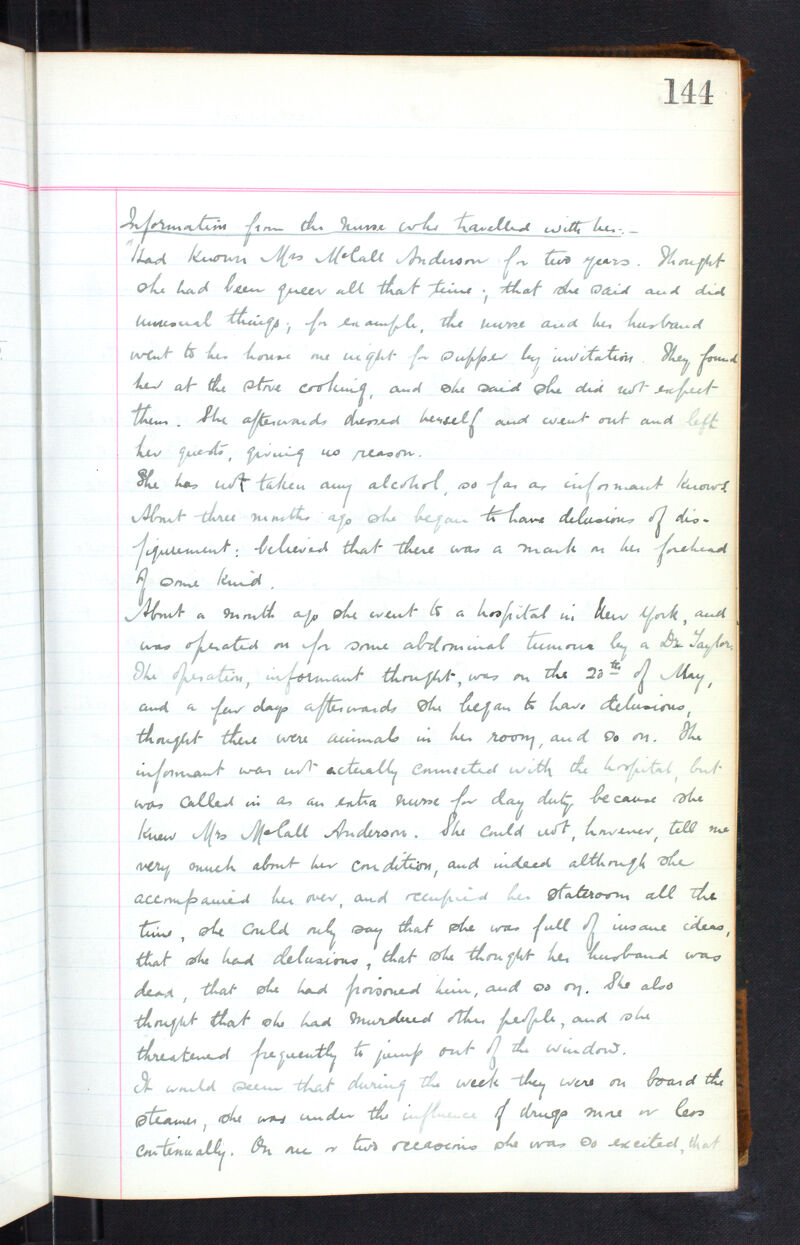 144
Information from the nurse who travelled with her:-
"Had known Mrs McCall Anderson for two years. Thought
she had been queer all that time; that she said and did
unusual things; for example, the nurse and her husband
went to her house one night for supper by invitation. They found
her at the stove cooking, and she said she did not expect
them. She afterwards dressed herself and went out and left
her guests, giving no reason.
She has not taken any alcohol, so far as informant knows.
About three months ago she began to have delusions of dis-
figurement: believed that there was a mark on her forehead
of some kind.
About a month ago she went to a hospital in New York, and
was operated on for some abdominal tumour by a Dr Taylor.
The operation, informant thought, was on the 20th of May,
and a few days afterwards she began to have delusions,
thought there were animals in her room, and so on. The
informant was not actually connected with the hospital, but
was called in as an extra nurse for day duty because she
knew Mrs McCall Anderson. She could not, however, tell me
very much about her condition, and indeed although she
accompanied her over, and occupied her stateroom all the
time, she could only say that she was full of insane ideas,
that she had delusions, that she thought her husband was
dead, that she had poisoned him, and so on. She also
thought that she had murdered other people, and she
threatened frequently to jump out of the window.
It would seem that during the week they were on board the
steamer, she was under the influence of drugs more or less
continually. On one or two occasions she was so excited, that